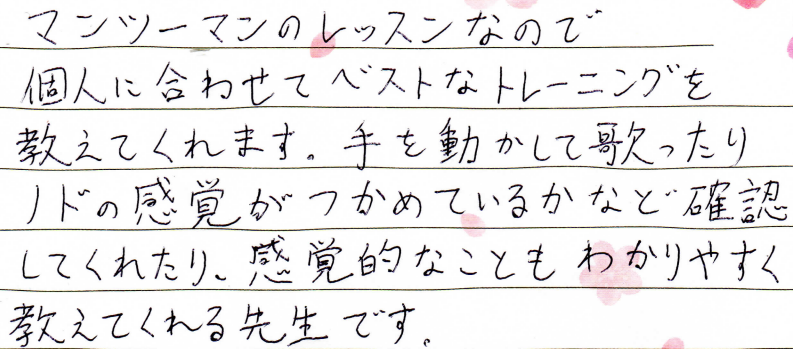 マンツーマンのレッスンなので
個人に合わせてベストなトレーニングを
教えてくれます。手を動かして歌ったり
ノドの感覚がつかめているかなど確認
してくれたり、感覚的なこともわかりやすく
教えてくれる先生です。